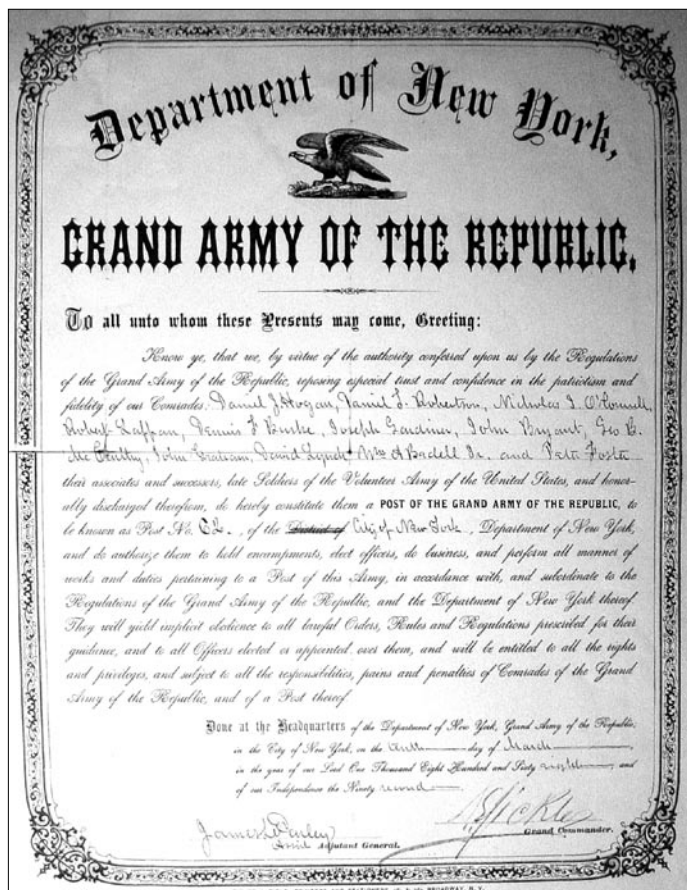 Department of New York,
GRAND ARMY OF THE REPUBLIC.
To all unto whom these Presents may come, Greeting:
Know ye, that we, by virtue of the authority conferred upon us by the Regulations
of the Grand Army of the Republic, reposing especial trust and confidence in the patriotism and
fidelity of our Comrades: Daniel J. Hogan, F. Robertson, Nicholas
Robert Laffan, Dennis F Burke, Joseph Gardiner, John Bryant, Geo
John David Lynch, Wm A Bedell Jr. and Peter Foster
their associates and successors, late Soldiers of the Volunteer Army of the United States, and honor-
ably discharged therefrom, do hereby constitute them a POST OF THE GRAND ARMY OF THE REPUBLIC, to
be known as Post No. 62., of the District of City of New York, Department of New York,
and do authorize them to hold encampments, elect officers, do business, and perform all manner of
works and duties pertaining to a Post of this Army, in accordance with, and subordinate to the
Regulations of the Grand Army of the Republic, and the Department of New York thereof.
They will yield implicit obedience to all lawful Orders, Rules and Regulations prescribed for their
guidance, and to all Officers elected or appointed over them, and will be entitled to all the rights
and privileges, and subject to all the responsibilities, pains and penalties of Comrades of the Grand
Army of the Republic, and of a Post thereof.
Done at the Headquarters of the Department of New York, Grand Army of the Republic,
in the City of New York, on the day of March
in the year of our Lord One Thousand Eight Hundred and Sixty eighth, and
of our Independence the Ninety second
Sickles
Grand Commander.
James
Assist Adjutant General.
BROADWAY, N. Y.